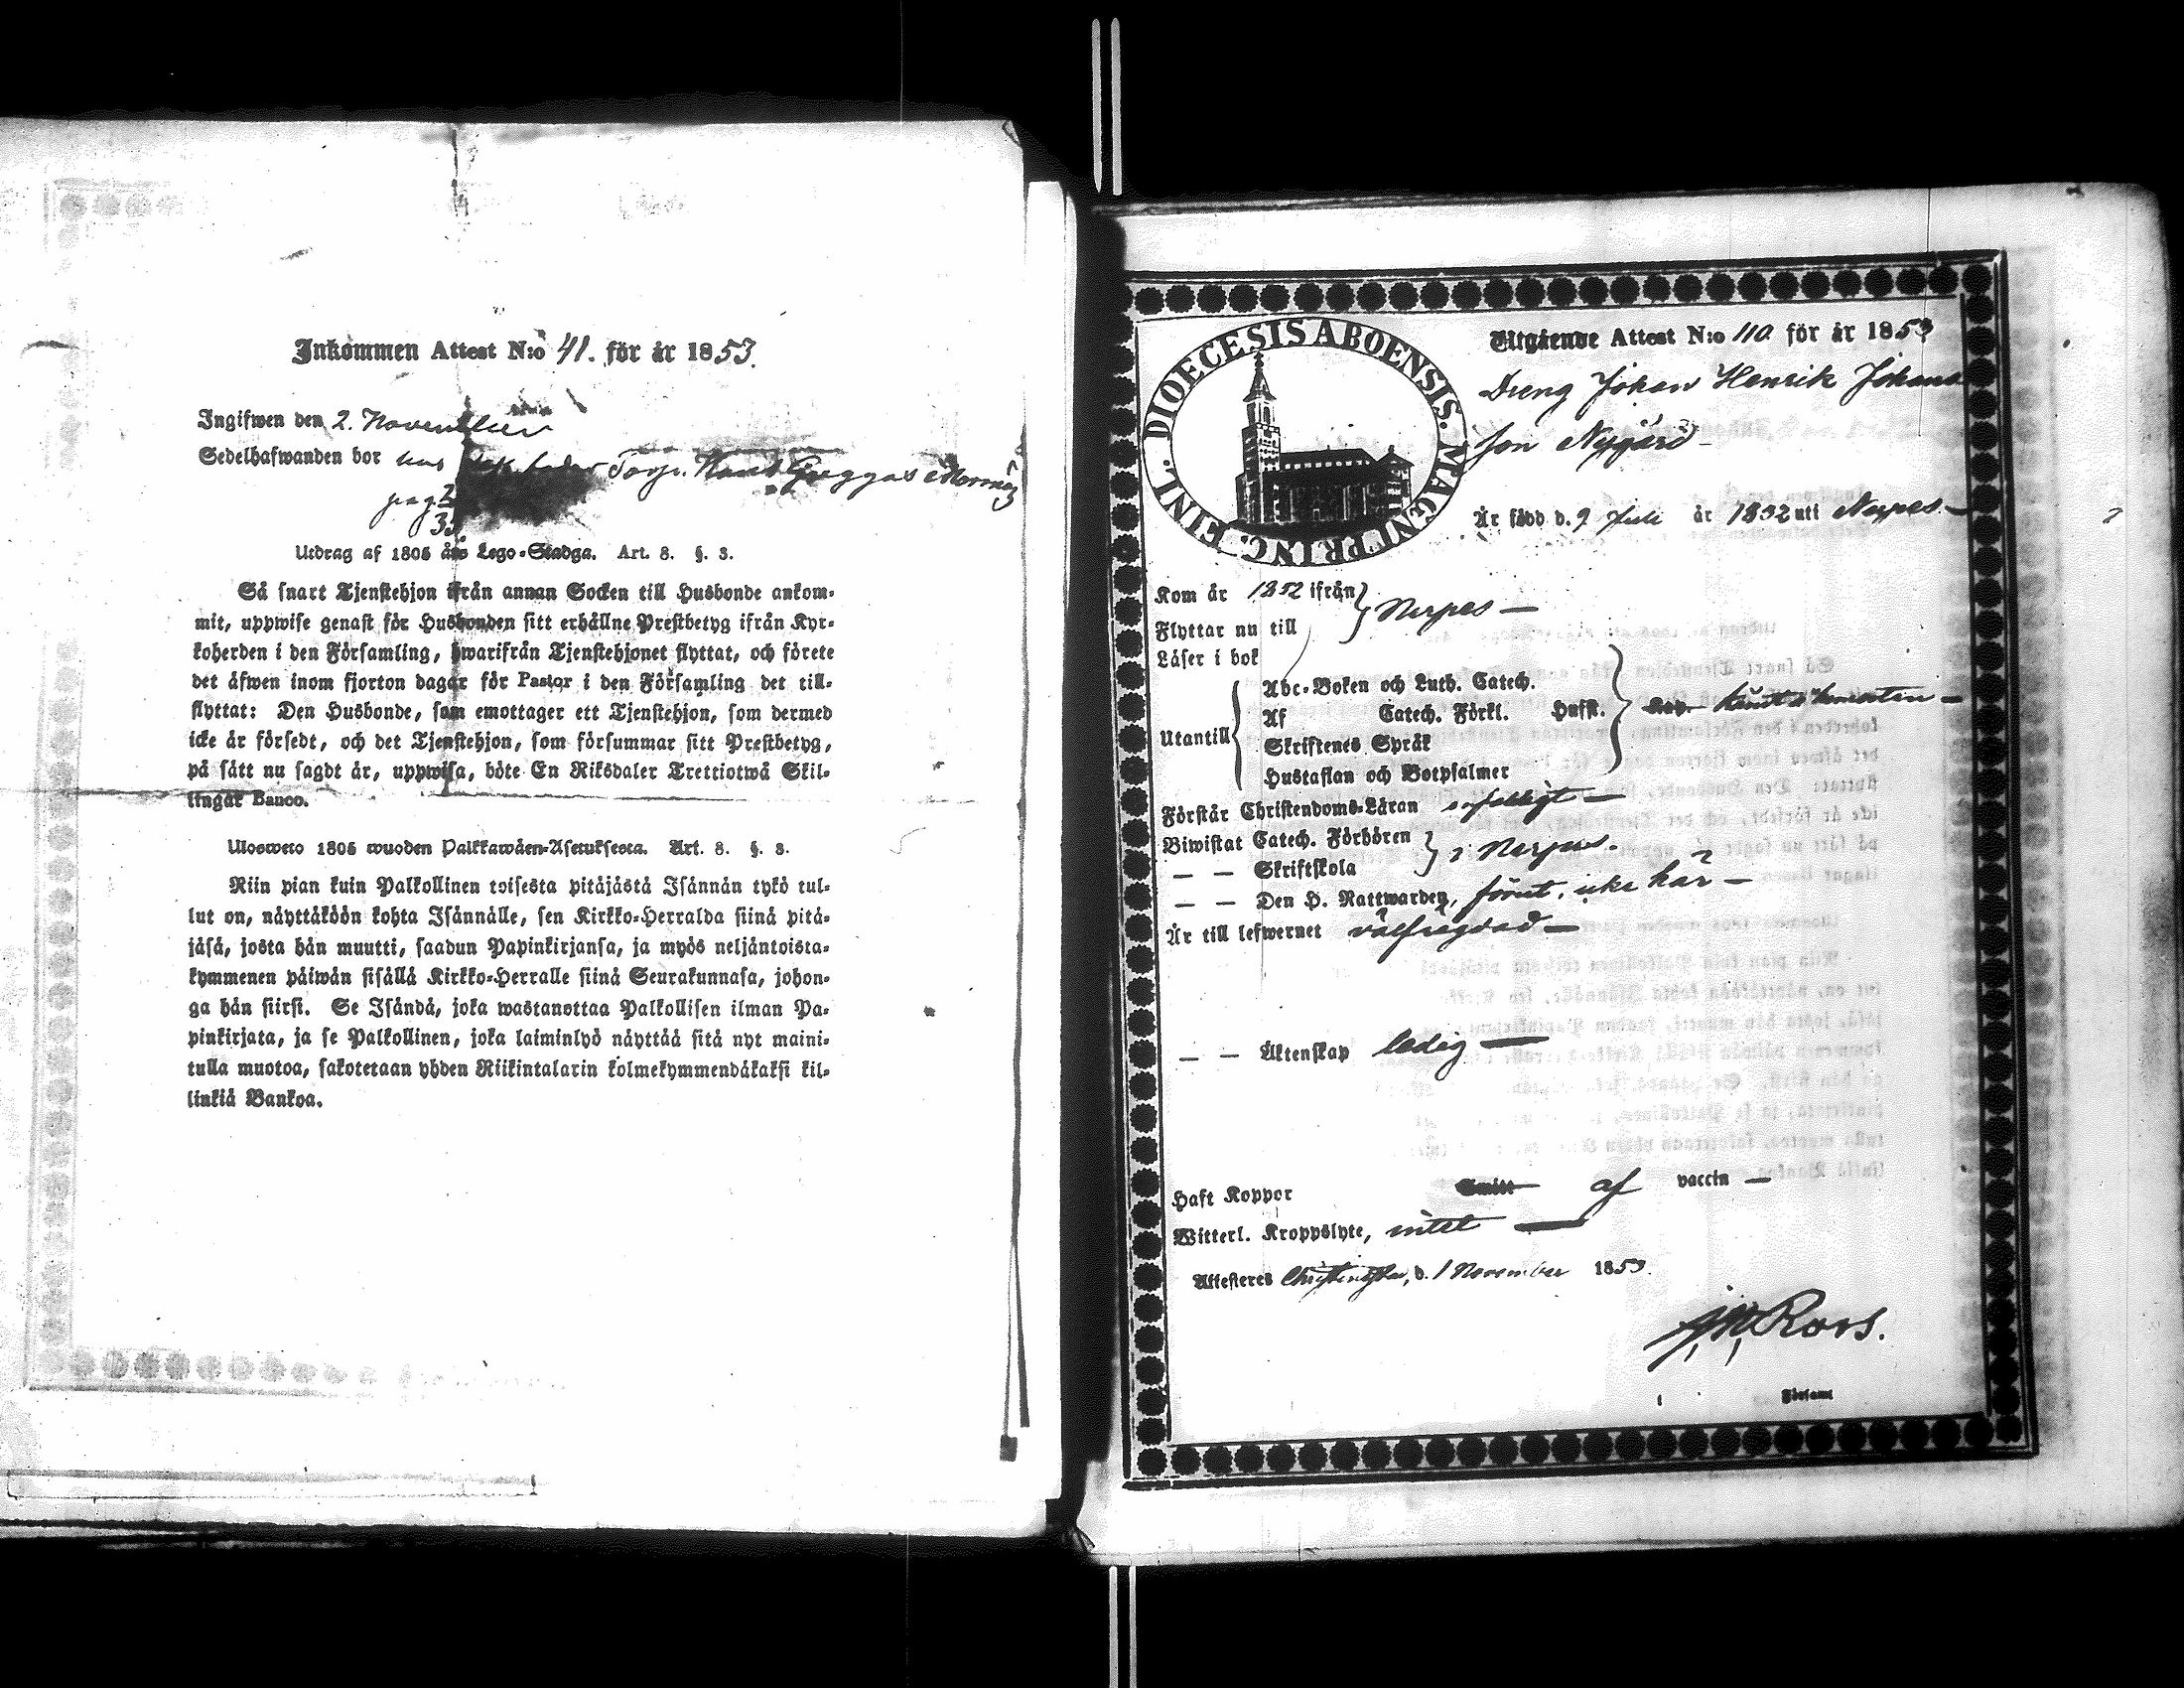 Inkommen Attest N:o 41. för år 1853.
Ingifwen den 2. November
Sedelhafwanden bor hos Torp. Hans Greggas
pag.
Utdrag af 1805 års Lego-Stadga. Art. 8. §. 3.
Så snart Tjenstehjon ifrån annan Socken till Husbonde ankom-
mit, uppwise genast för Husbonden sitt erhållne Prestbetyg ifrån Kyr-
koherden i den Församling, hwarifrån Tjenstehjonet flyttat, och förete
det äfwen inom fjorton dagar för Pastor i den Församling det till-
flyttat: Den Husbonde, som emottager ett Tjenstehjon, som dermed
icke är försedt, och det Tjenstehjon, som försummar sitt Prestbetyg,
på sätt nu sagdt är, uppwisa, böte En Riksdaler Trettiotwå Skil-
lingar Banco.
Ulosweto 1805 wuoden Palkkawäen-Asetuksesta. Art. 8. §. 3.
Niin pian kuin Palkollinen toisesta pitäjästä Isännän tykö tul-
lut on, näyttäköön kohta Isännälle, sen Kirkko-Herralda siinä pitä-
jäsä, josta hän muutti, saadun Papinkirjansa, ja myös neljäntoista-
kymmenen päiwän sisällä Kirkko-Herralle siinä Seurakunnasa, johon-
ga hän siirsi. Se Isändä, joka wastanottaa Palkollisen ilman Pa-
pinkirjata, ja se Palkollinen, joka laiminlyö näyttää sitä nyt maini-
tulla muotoa, sakotetaan yhden Riikintalarin kolmekymmendäkaksi kil-
linkiä Bankoa.
DIOECESIS ABOENSIS. MAGNI PRINC. FINL.
Utgående Attest N:o 110 för år 1853
Dreng Johan Henrik Johans
son Nygård
Är född d. 9 Juli år 1832 uti Nerpes
Kom år 1852 ifrån
Flyttar nu till
Nerpes
Läser i bok
Utantill
Abc-Boken och Luth. Catech.
Af Catech. Förkl. Husst.
Skriftenes Språk
Hustaflan och Botpsalmer
Förstår Christendoms-Läran
Biwistat Catech. Förhören
— — Skriftskola
i Nerpes.
— — Den H. Nattwarden, förut, icke här
Är till lefwernet välfrägdad
— — Äktenskap ledig
Haft Koppor Smitt af vaccin
Witterl. Kroppslyte, intet
Attesteres Christinestad, d. 1 November 1853.
Roos.
Församl